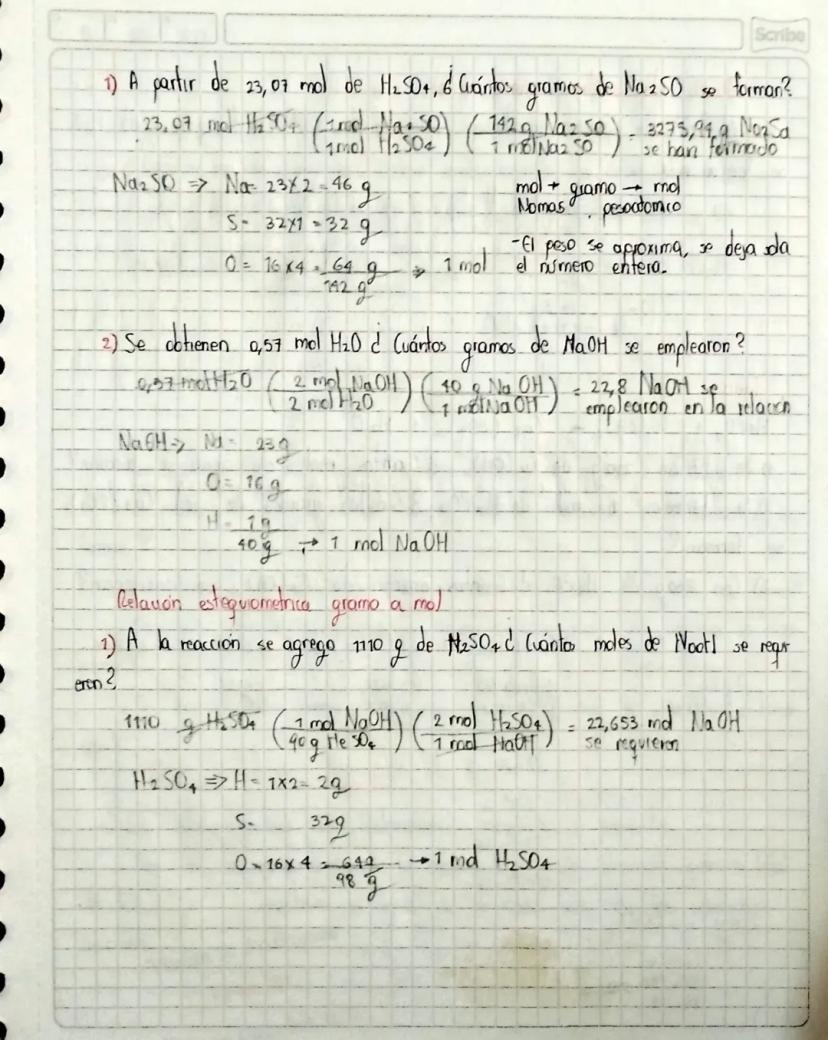 Scribe
1) A partir de 23,07 mol de H2SO4, ¿Cuántos gramos de Na2SO se forman?
23,07 mol H2SO4 (1 mol Na2SO / 1 mol H2SO4) (142 g Na2SO / 1 mol Na2SO) = 3275,94 g Na2So
se han formado
Na2SO ⇒ Na= 23x2 = 46 g
mol + gramo → mol
Nomas pesoatomico
S= 32x1 = 32 g
-El peso se aproxima, se deja sola
el número entera.
O = 16x4 = 64 g → 1 mol
142 g
2) Se obtienen 0,57 mol H2O ¿ Cuántos gramos de NaOH se emplearon?
0,57 mol H2O (2 mol NaOH / 2 mol H2O) (40 g NaOH / 1 mol NaOH) = 22,8 NaOH se
emplearon en la relacion
NaOH ⇒ Na = 23 g
O = 16 g
H = 1 g
40 g → 1 mol NaOH
Relación estequiometrica gramo a mol
1) A la reacción se agrego 1110 g de H2SO4 ¿ Cuántos moles de NaOH se requi
eren?
1110 g H2SO4 (1 mol NaOH / 90 g He SO4) (2 mol H2SO4 / 1 mol NaOH) = 22,653 mol NaOH
se requieren
H2SO4 ⇒ H = 1x2 = 2g
S= 32g
O = 16x4 = 64g → 1 mol H2SO4
98 g